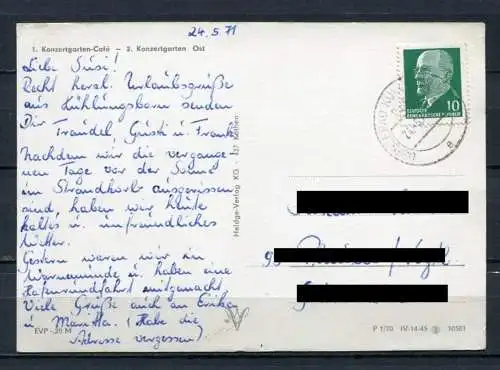 24.5.71
1. Konzertgarten-Café – 2. Konzertgarten Ost
Liebe Susi!
Recht herzl. Urlaubsgrüße
aus Kühlungsborn senden
Dir Traudel, Gusti u. Frank
Nachdem wir die vergange-
nen Tage vor der Sonne
im Strandkorb ausgerissen
sind, haben wir heute
kaltes u. unfreundliches
Wetter.
Gestern waren wir in
Warnemünde u. haben eine
Hafenrundfahrt mitgemacht
Viele Grüße auch an Erika
u. Maritta. (Habe die
Adresse vergessen!)
EVP -,20 M
Heldge-Verlag KG · 437 Köthen
10
DEUTSCHE
DEMOKRATISCHE REPUBLIK
P 1/70 IV-14-45 10501